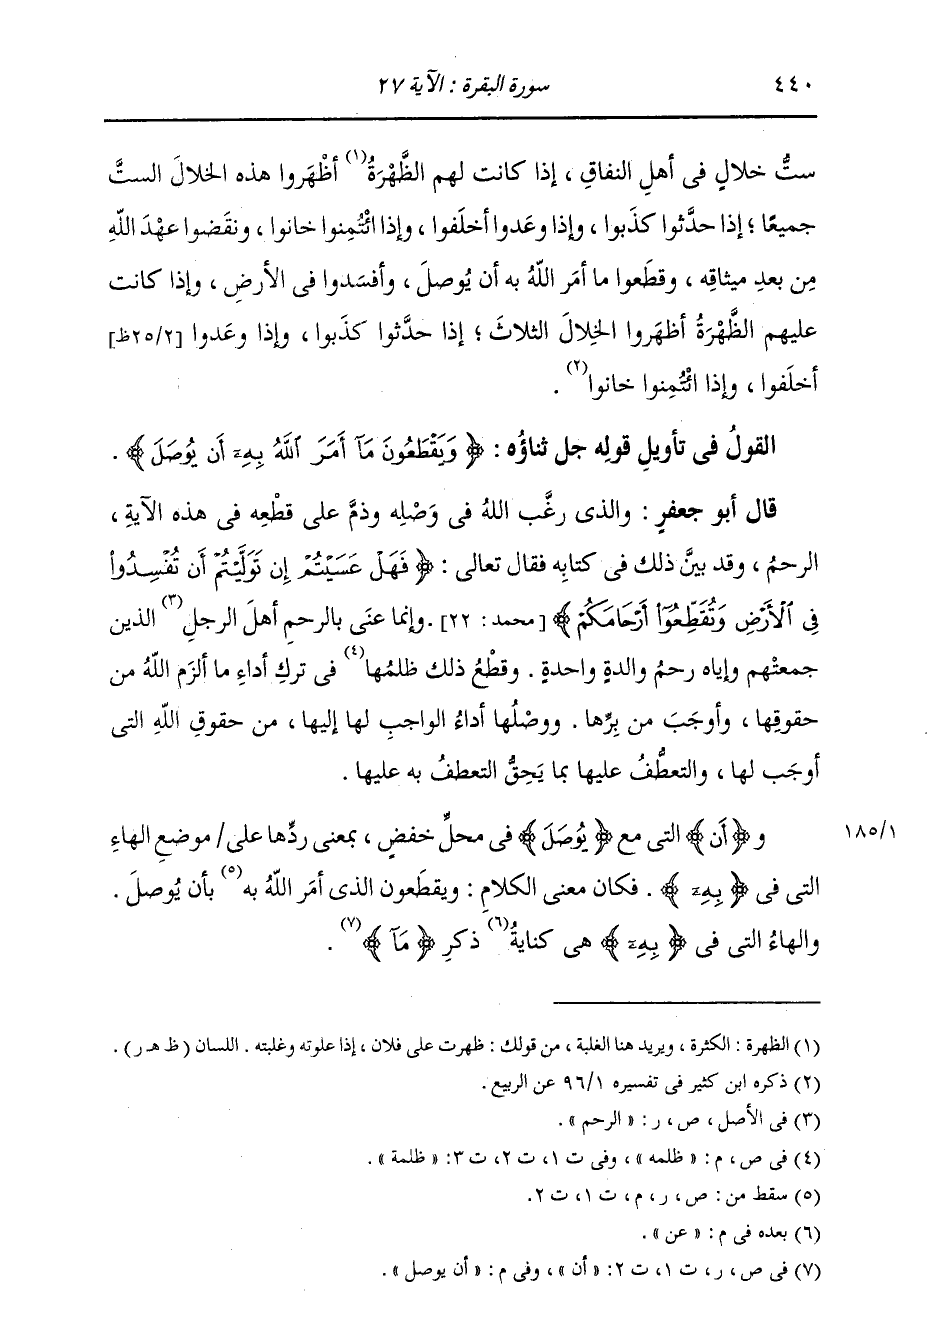 ٤٤٠ سورة البقرة : الآية ٢٧
ستُّ خلالٍ فى أهلِ النفاقِ ، إذا كانت لهم الظَّهْرَةُ(١) أظْهَروا هذه الخلالَ الستَّ
جميعًا ؛ إذا حدَّثوا كذَبوا ، وإذا وعَدوا أخلَفوا ، وإذا ائْتُمِنوا خانوا ، ونقَضوا عهْدَ اللَّهِ
مِن بعدِ ميثاقِه ، وقطَعوا ما أمَر اللَّهُ به أن يُوصلَ ، وأفسَدوا فى الأرضِ ، وإذا كانت
عليهم الظَّهْرَةُ أظهَروا الخِلالَ الثلاثَ ؛ إذا حدَّثوا كذَبوا ، وإذا وعَدوا [٢٥/٢ظ]
أخلَفوا ، وإذا ائْتُمِنوا خانوا(٢) .
القولُ فى تأويلِ قولِه جل ثناؤُه : ﴿ وَيَقْطَعُونَ مَآ أَمَرَ ٱللَّهُ بِهِۦٓ أَن يُوصَلَ ﴾ .
قال أبو جعفرٍ : والذى رغَّب اللهُ فى وَصْلِه وذمَّ على قطْعِه فى هذه الآيةِ ،
الرحمُ ، وقد بينَّ ذلك فى كتابِه فقال تعالى : ﴿ فَهَلْ عَسَيْتُمْ إِن تَوَلَّيْتُمْ أَن تُفْسِدُوا۟
فِى ٱلْأَرْضِ وَتُقَطِّعُوٓا۟ أَرْحَامَكُمْ ﴾ [محمد : ٢٢] . وإنما عنَى بالرحمِ أهلَ الرجلِ(٣) الذين
جمعتْهم وإياه رحمُ والدةٍ واحدةٍ . وقطْعُ ذلك ظلمُها(٤) فى تركِ أداءِ ما ألزَم اللَّهُ من
حقوقِها ، وأوجَبَ من بِرِّها . ووصْلُها أداءُ الواجبِ لها إليها ، من حقوقِ اللَّهِ التى
أوجَب لها ، والتعطُّفُ عليها بما يَحِقُّ التعطفُ به عليها .
و ﴿ أَن ﴾ التى مع ﴿ يُوصَلَ ﴾ فى محلِّ خفضٍ ، بمعنى ردِّها على/ موضعِ الهاءِ ١٨٥/١
التى فى ﴿ بِهِۦٓ ﴾ . فكان معنى الكلامِ : ويقطَعون الذى أمَر اللَّهُ به(٥) بأن يُوصلَ .
والهاءُ التى فى ﴿ بِهِۦٓ ﴾ هى كنايةُ(٦) ذكرِ ﴿ مَآ ﴾(٧) .
(١) الظهرة : الكثرة ، ويريد هنا الغلبة ، من قولك : ظهرت على فلان ، إذا علوته وغلبته . اللسان ( ظ هـ ر ) .
(٢) ذكره ابن كثير فى تفسيره ٩٦/١ عن الربيع .
(٣) فى الأصل ، ص ، ر : « الرحم » .
(٤) فى ص ، م : « ظلمه » ، وفى ت ١، ت ٢، ت ٣: « ظلمة » .
(٥) سقط من : ص ، ر ، م ، ت ١، ت ٢.
(٦) بعده فى م : « عن » .
(٧) فى ص ، ر ، ت ١، ت ٢: « أن » ، وفى م : « أن يوصل » .